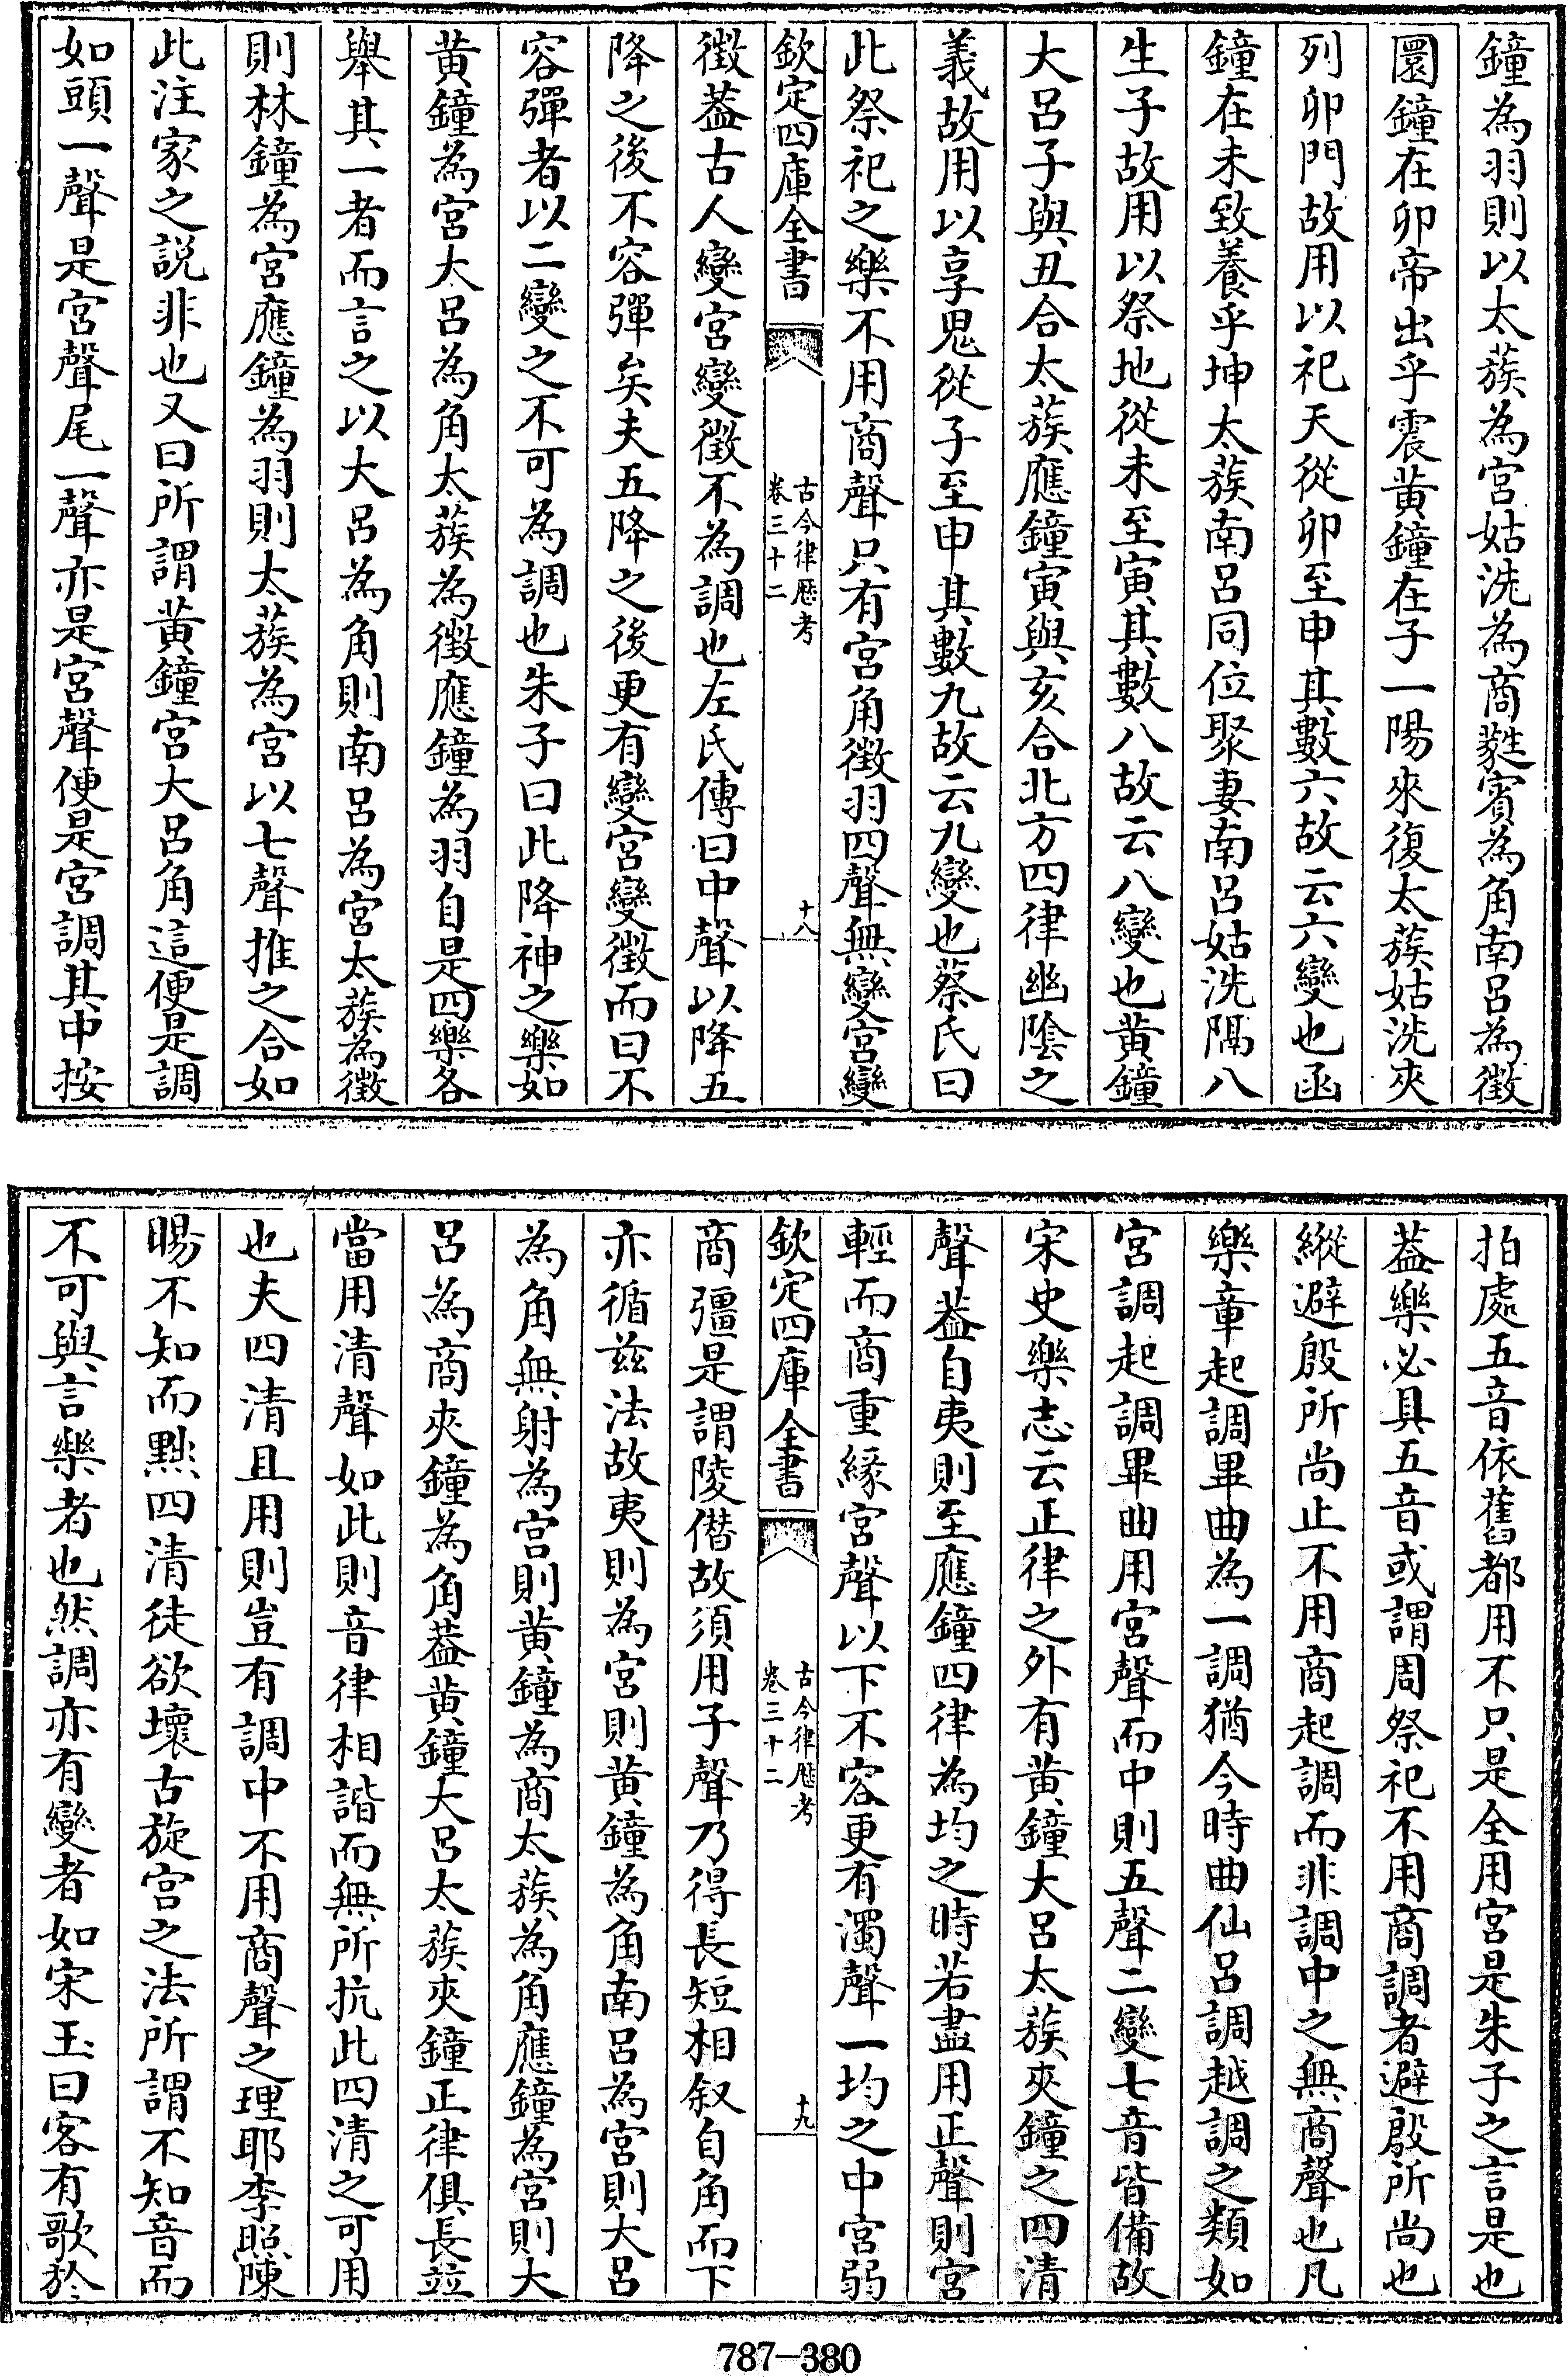 鐘為羽則以太蔟為宮姑洗為商蕤賓為角南呂為徵
圜鐘在卯帝出乎震黃鐘在子一陽來復太蔟姑洗夾
列卯門故用以祀天從卯至申其數六故云六變也函
鐘在未致養乎坤太蔟南呂同位聚妻南呂姑洗隔八
生子故用以祭地從未至寅其數八故云八變也黃鐘
大呂子與丑合太蔟應鐘寅與亥合北方四律幽陰之
義故用以享鬼從子至申其數九故云九變也蔡氏曰
此祭祀之樂不用商聲只有宮角徵羽四聲無變宮變
欽定四庫全書 古今律歷考 卷三十二 十八
徵葢古人變宮變徵不為調也左氏傳曰中聲以降五
降之後不容彈矣夫五降之後更有變宮變徵而曰不
容彈者以二變之不可為調也朱子曰此降神之樂如
黃鐘為宮大呂為角太蔟為徵應鐘為羽自是四樂各
舉其一者而言之以大呂為角則南呂為宮太蔟為徵
則林鐘為宮應鐘為羽則太蔟為宮以七聲推之合如
此注家之説非也又曰所謂黃鐘宮大呂角這便是調
如頭一聲是宮聲尾一聲亦是宮聲便是宮調其中按
拍處五音依舊都用不只是全用宮是朱子之言是也
葢樂必具五音或謂周祭祀不用商調者避殷所尚也
縱避殷所尚止不用商起調而非調中之無商聲也凡
樂章起調畢曲為一調猶今時曲仙呂調越調之類如
宮調起調畢曲用宮聲而中則五聲二變七音皆備故
宋史樂志云正律之外有黃鐘大呂太蔟夾鐘之四清
聲葢自夷則至應鐘四律為均之時若盡用正聲則宮
輕而商重緣宮聲以下不容更有濁聲一均之中宮弱
欽定四庫全書 古今律歷考 卷三十二 十九
商彊是謂陵僭故須用子聲乃得長短相叙自角而下
亦循兹法故夷則為宮則黃鐘為角南呂為宮則大呂
為角無射為宮則黃鐘為商太蔟為角應鐘為宮則大
呂為商夾鐘為角葢黃鐘大呂太蔟夾鐘正律俱長竝
當用清聲如此則音律相諧而無所抗此四清之可用
也夫四清且用則豈有調中不用商聲之理耶李照陳
暘不知而㸃四清徒欲壞古旋宮之法所謂不知音而
不可與言樂者也然調亦有變者如宋玉曰客有歌於
787-380